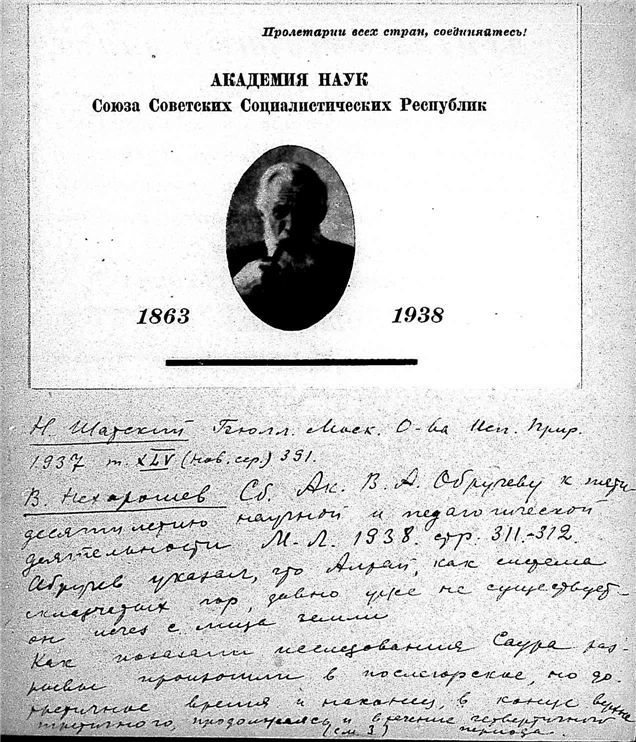 Пролетарии всех стран, соединяйтесь!
АКАДЕМИЯ НАУК
Союза Советских Социалистических Республик
1863 1938
Н. Шатский Бюлл. Моск. О-ва Исп. Прир.
1937 т. XLV (нов. сер.) 391.
В. Нехорошев Сб. Ак. В. А. Обручеву к пяти-
десятилетию научной и педагогической
деятельности М.-Л. 1938. стр. 311.-312.
Обручев указал, что Алтай, как система
складчатых гор, давно уже не существует-
он исчез с лица земли
Как показали исследования Саура раз-
рывы произошли в послеюрское, но до-
третичное время и наконец, в конце
третичного, продолжаясь и в течение четвертичного
(см. 3) периода.